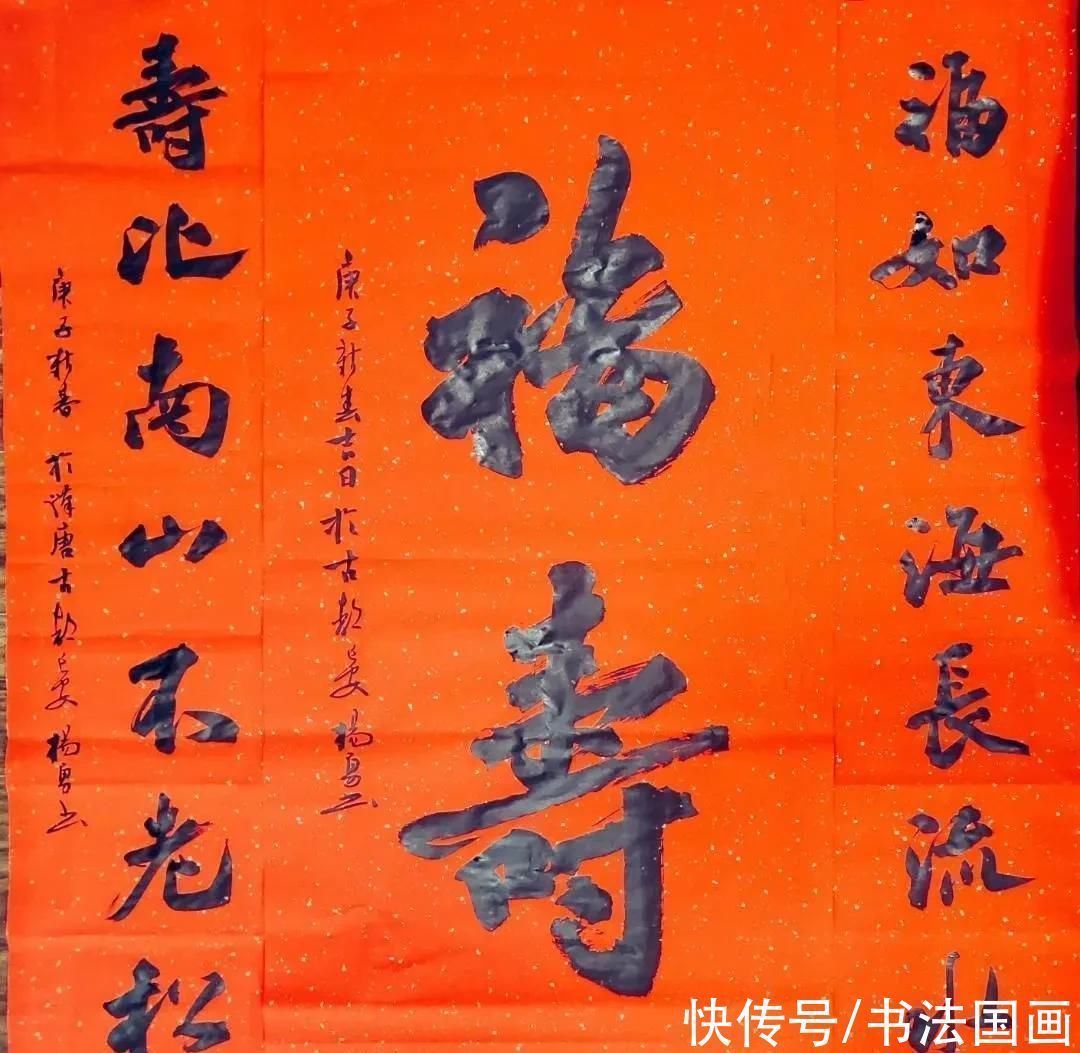 福如東海長流水
福壽
庚子新春吉日於古都長安 楊勇书
壽比南山不老松
庚子新春 於漢唐古都長安 楊勇书
快传号/书法国画